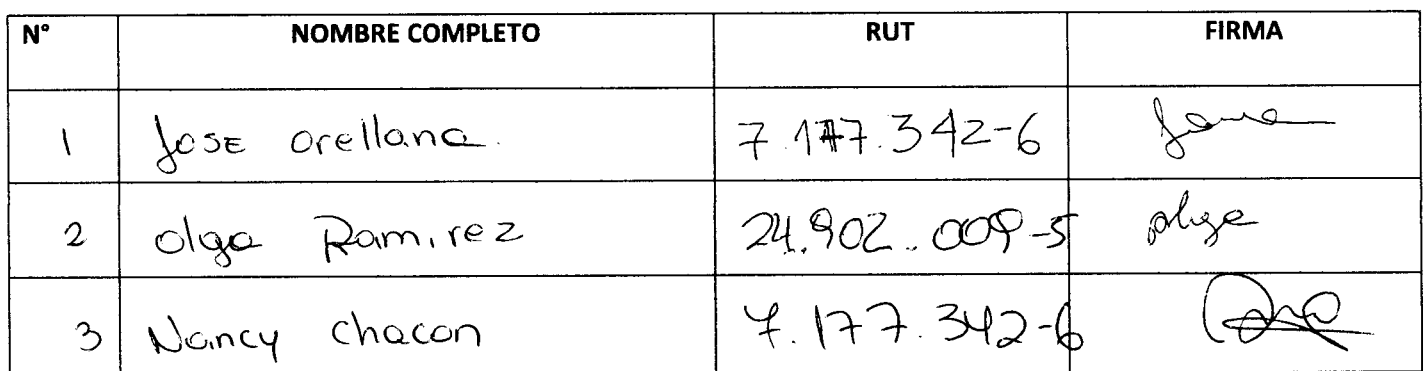 N° NOMBRE COMPLETO RUT FIRMA
1 Jose Orellana. 7.177.342-6
2 Olga Ramirez 24.902.009-5 Olga
3 Nancy Chacon 7.177.342-6